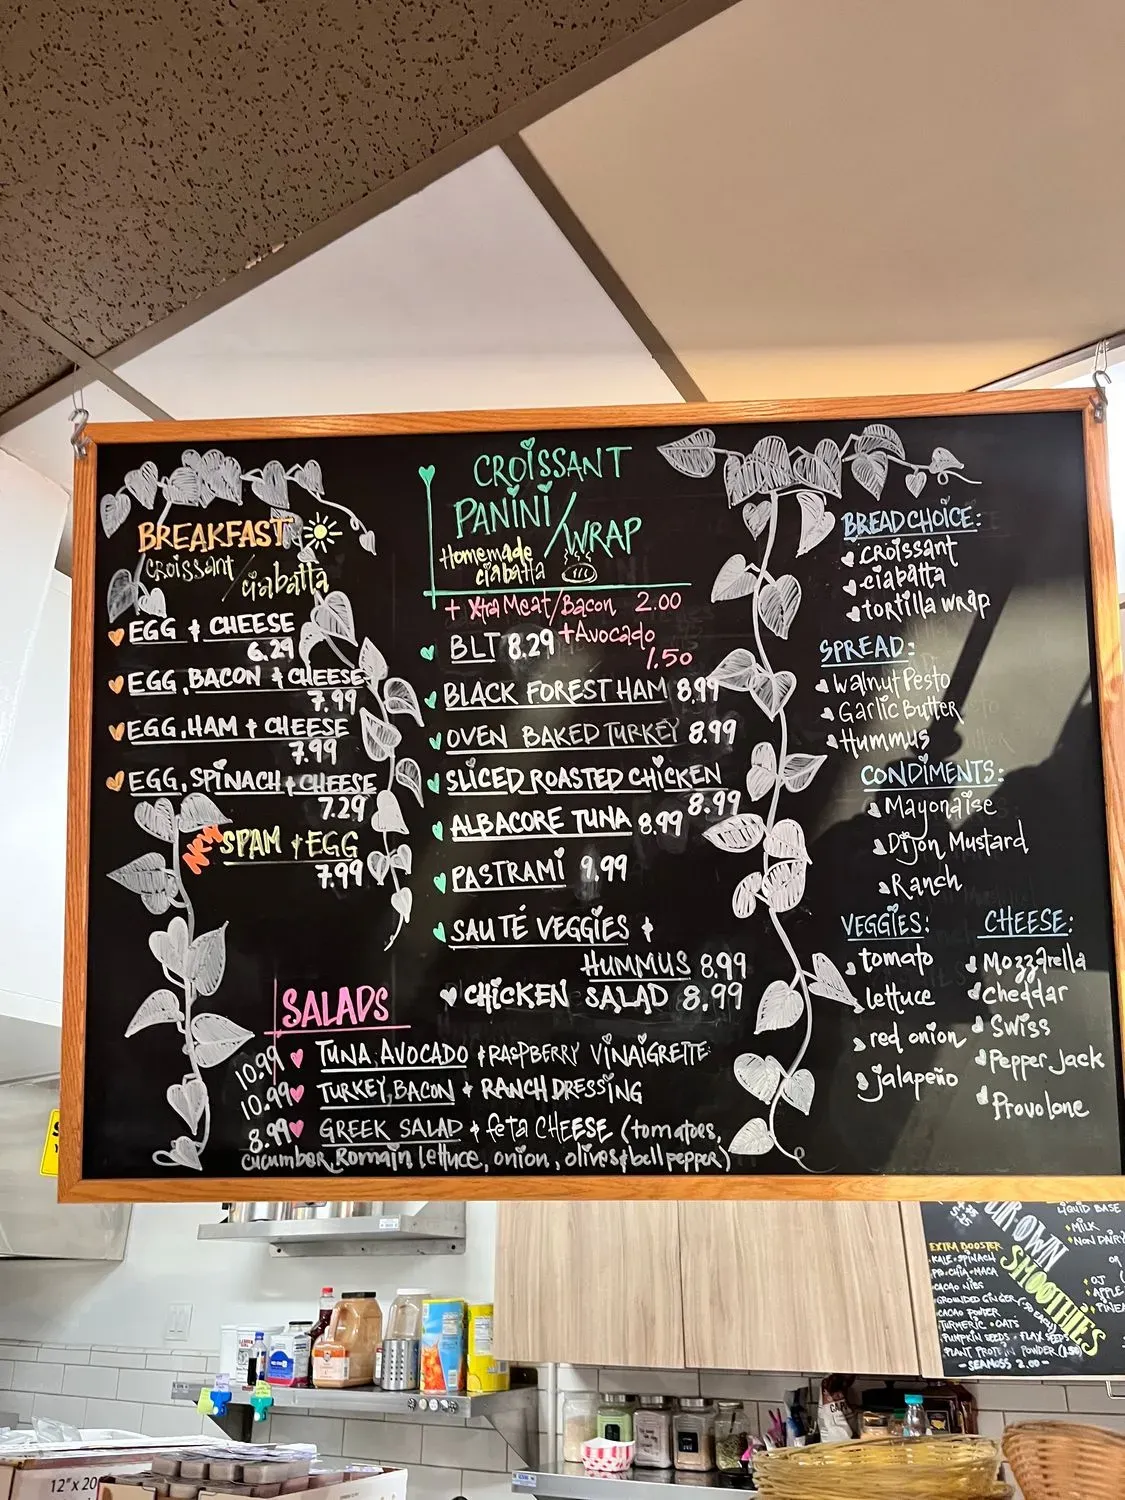 BREAKFAST
Croissant / ciabatta
EGG + CHEESE
6.29
EGG, BACON + CHEESE
7.99
EGG, HAM + CHEESE
7.99
EGG, SPINACH + CHEESE
7.29
NEW SPAM + EGG
7.99
CROISSANT
PANINI / WRAP
Homemade
ciabatta
+ Xtra Meat/Bacon 2.00
BLT 8.29 + Avocado
1.50
BLACK FOREST HAM 8.99
OVEN BAKED TURKEY 8.99
SLICED ROASTED CHICKEN
8.99
ALBACORE TUNA 8.99
PASTRAMI 9.99
SAUTÉ VEGGIES +
HUMMUS 8.99
CHICKEN SALAD 8.99
SALADS
10.99 TUNA, AVOCADO + RASPBERRY VINAIGRETTE
10.99 TURKEY, BACON + RANCH DRESSING
8.99 GREEK SALAD + feta CHEESE (tomatoes,
cucumber, Romain lettuce, onion, olives & bell pepper)
BREAD CHOICE:
croissant
ciabatta
tortilla wrap
SPREAD:
Walnut Pesto
Garlic Butter
Hummus
CONDIMENTS:
Mayonaise
Dijon Mustard
Ranch
VEGGIES:
tomato
lettuce
red onion
jalapeño
CHEESE:
Mozzarella
Cheddar
Swiss
Pepper Jack
Provolone
OWN
SMOOTHIES
EXTRA BOOSTER
KALE • SPINACH
PB • CHIA • MACA
CACAO NIBS
GROUNDED GINGER
CACAO POWDER
TURMERIC • OATS
PUMPKIN SEEDS • FLAX SEEDS
PLANT PROTEIN POWDER (1.50)
- SEAMOSS 2.00 -
LIQUID BASE
MILK
NON DAIRY
OR
OJ
APPLE
12" x 20